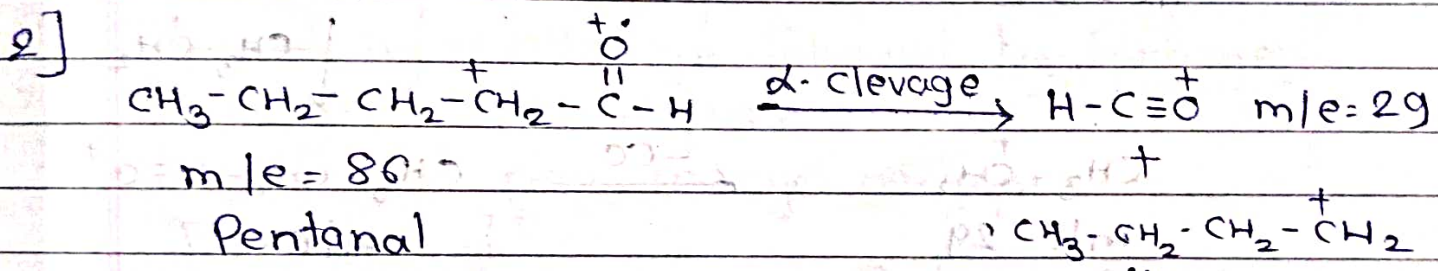 2]
+ •
O
+ ||
CH₃-CH₂-CH₂-CH₂-C-H α-clevage → H-C≡O⁺ m/e=29
m/e=86
+
+
Pentanal CH₃-CH₂-CH₂-CH₂